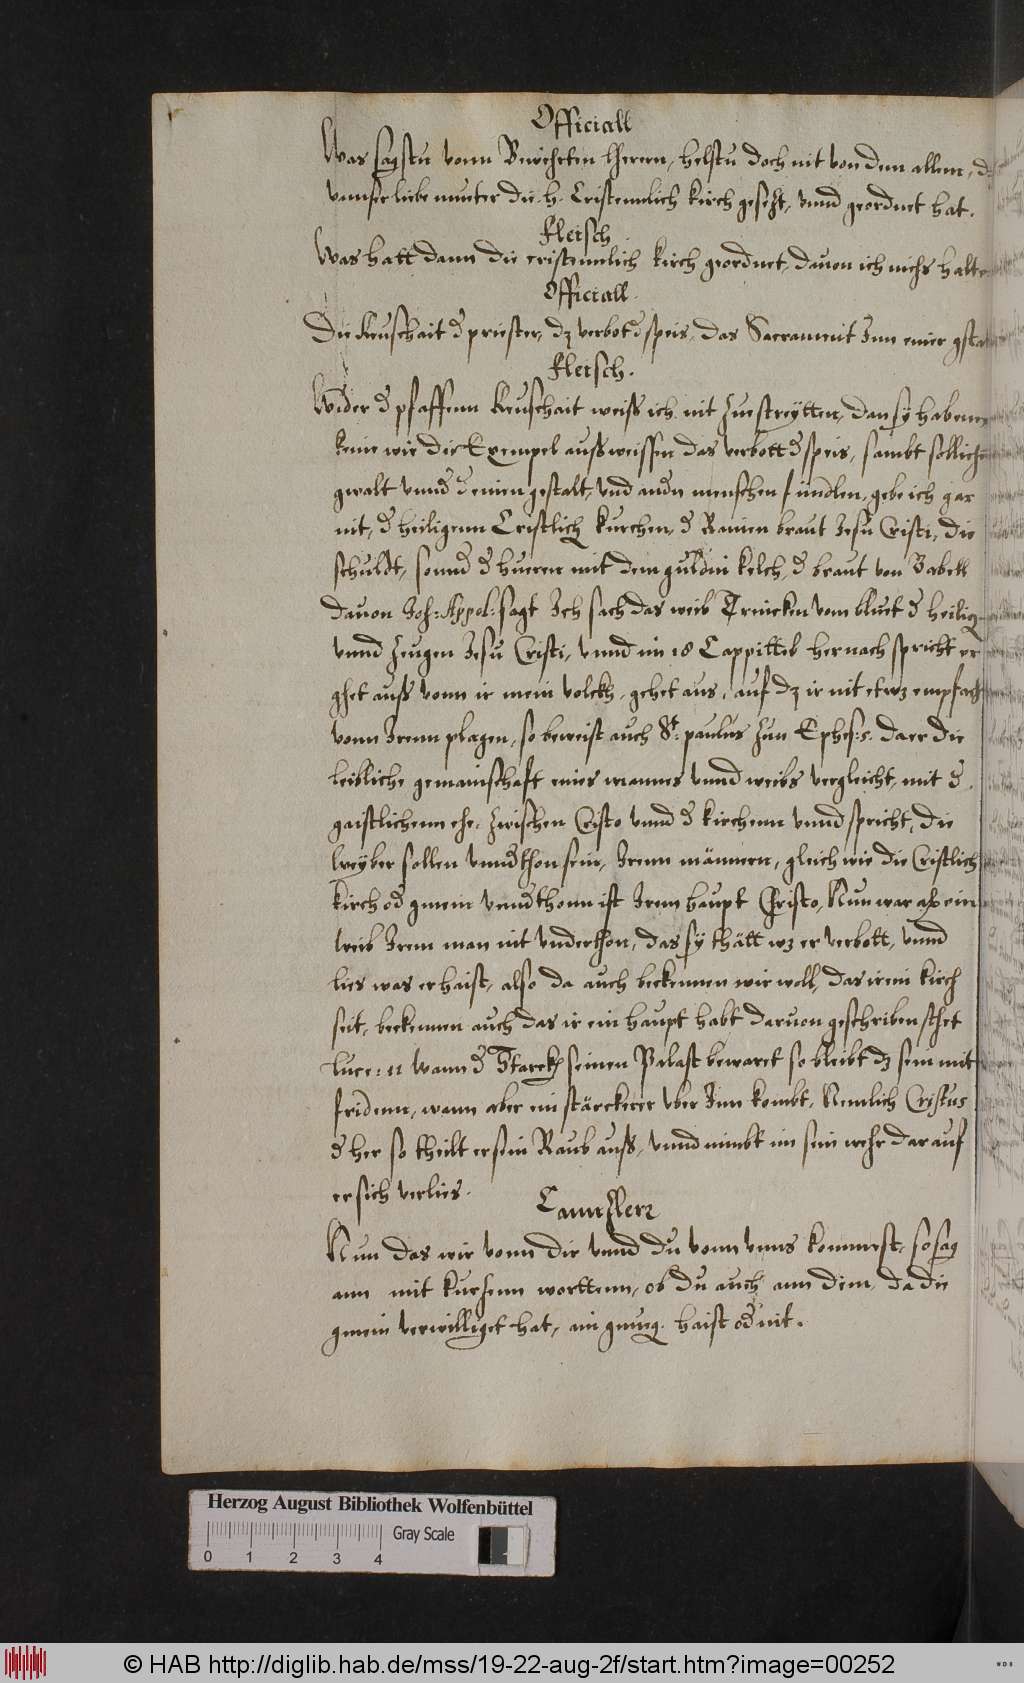 Officiall
Was sagstu vonn Verichten Herrn, helstu doch nit von dem allem, d
vnnser liebe mutter die h. Cristennlich kirch gesetzt, vnnd geordnet hat.
Fleisch
Was hatt dann die cristennlich kirch geordnet, dauon ich nichs halte
Officiall.
Die Keuschait d priester, dz verbot d speis, das Sacrament Inn einer gsta
Fleisch.
Wider d pfaffenn Keuschait weiss ich nit zue streytten, dan sy haben
keine wie die Exempel aussweissen das verbott d speis, sambt solliche
gwalt vnnd d einen gestalt, vnd andn menschen findlen, gebe ich gar
nit, d heiligenn Cristlich kurchen, d Rainen braut Jesu Cristi, die
schuldt, sonnd d hueren mit dem guldin kelch, d braut von Babell
dauon Joh: Appol: sagt Ich sach das weib Trincken vom bluet d heilig
vnnd zeugen Jesu Cristi, vnnd im 18 Cappittel hernach spricht er
ghet auss vonn ir mein volckh, gehet aus, auf dz ir nit etwz empfach
vonn Irenn plagen, so beweist auch St. paulus zun Ephes: 5. da er die
leibliche gemainschaft eines mannes vnnd weibs vergleicht, mit d
gaistlichenn ehe, zwischen Cristo vnnd d kirchenn vnnd spricht, die
weyber sollen vnndthon sein, Irenn männern, gleich wie die Cristlich
kirch od gmein vnndthonn ist Irem haupt Christo, Nun war also ein
weib Irem man nit vnderthon, das sy thätt wz er verbott, vnnd
lies was er haist, also da auch beckennen wir woll, das ir ein kirch
seit, beckennen auch das ir ein haupt habt daruon geschriben sthet
Luce: 11 Wann d Starckh seinen Palast bewaret so bleibt dz sein mit
fridenn, wann aber ein stärckerer vber Inn kombt, Nemlich Cristus
d her so theilt er sein Raub auss, vnnd nimbt im sein wehr dar auf
er sich verlies.
Cannzler
Nun das wir vonn dir vnnd du vonn vnns kommest, so sag
ann mit kurzenn worttenn, ob du auch ann dem, da die
gmein verwilliget hat, ain genueg haist od nit.
Herzog August Bibliothek Wolfenbüttel
Gray Scale
0 1 2 3 4
© HAB http://diglib.hab.de/mss/19-22-aug-2f/start.htm?image=00252